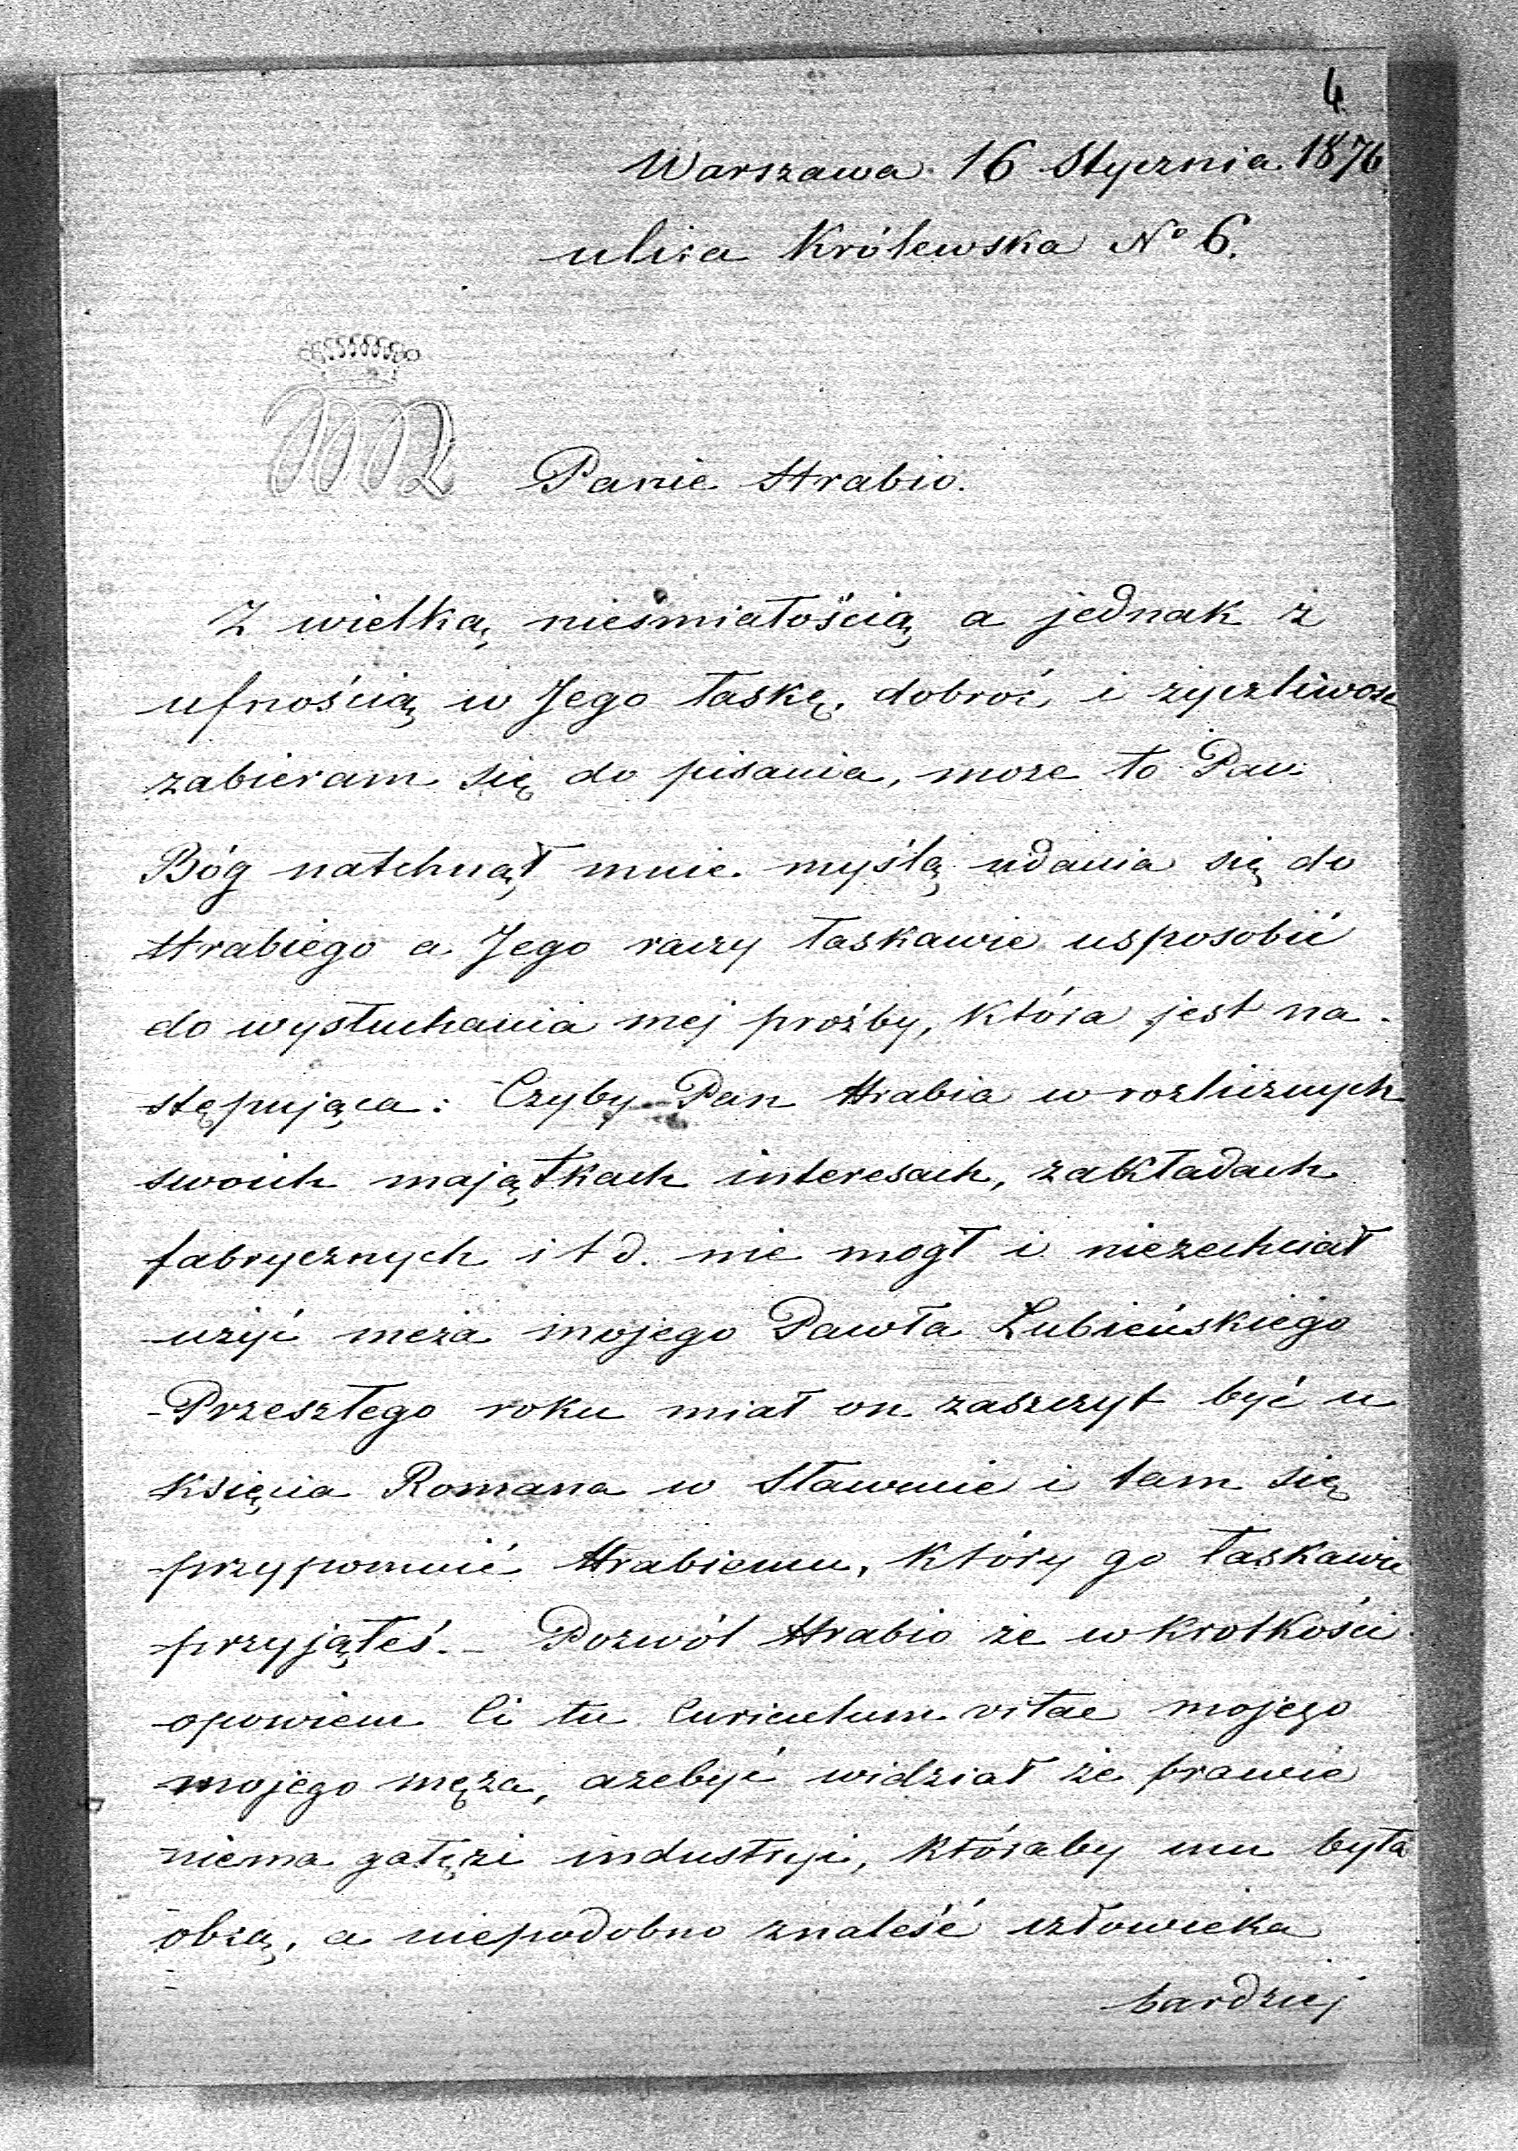 4
Warszawa 16 Stycznia 1876
ulica Królewska No 6.
Panie Hrabio.
Z wielką nieśmiałością a jednak z
ufnością w Jego łaskę, dobroć, i życzliwość
zabieram się do pisania, może to Pan
Bóg natchnął mnie myślą udania się do
Hrabiego a Jego raczy łaskawie usposobić
do wysłuchania mej proźby, która jest na-
stępująca: Czyby Pan Hrabia w rozlicznych
swoich majątkach interesach, zakładach
fabrycznych i t d. nie mogł i niezechciał
użyć męża mojego Pawła Łubieńskiego
-Przeszłego roku miał on zaszczyt być u
księcia Romana w Sławucie i tam się
przypomnić Hrabiemu, który go łaskawie
przyjąłeś. - Pozwól Hrabio że w krotkości
opowiem Ci tu Curiculum vitae mojego
mojego męża, ażebyć widział że prawie
niema gałęzi industryi, któraby mu była
obcą, a niepodobno znaleść człowieka
bardziej